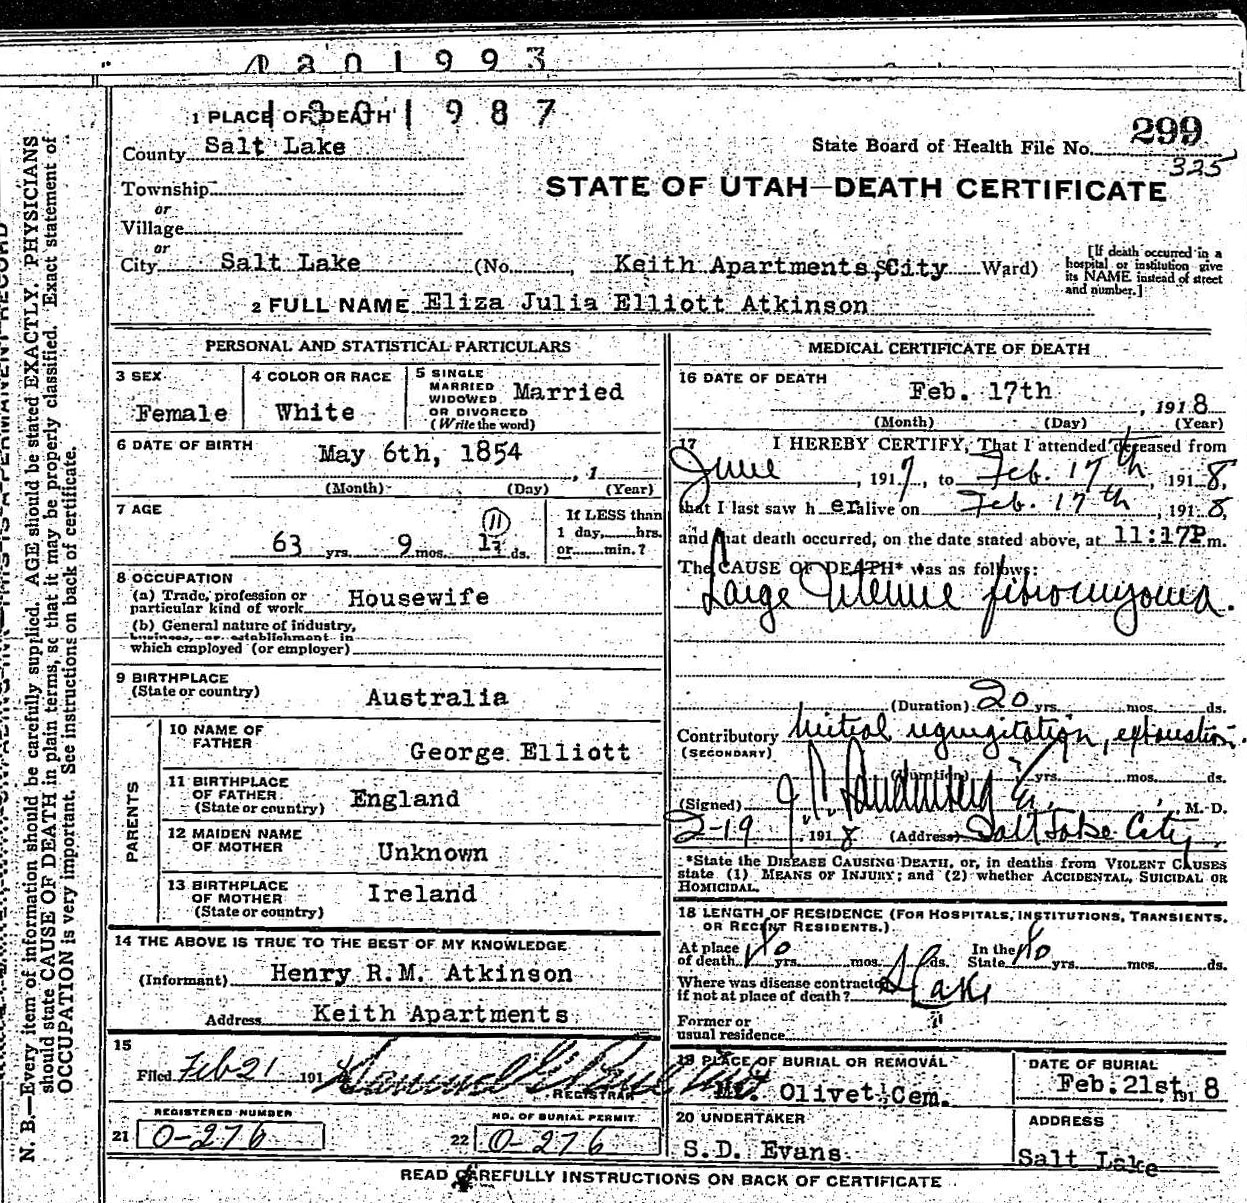 1801993
1801987
299
State Board of Health File No.
325
STATE OF UTAH—DEATH CERTIFICATE
1 PLACE OF DEATH
County Salt Lake
Township
or
Village
or
City Salt Lake (No. , Keith Apartments, City Ward)
[If death occurred in a
hospital or institution give
its NAME instead of street
and number.]
2 FULL NAME Eliza Julia Elliott Atkinson
PERSONAL AND STATISTICAL PARTICULARS
3 SEX
Female
4 COLOR OR RACE
White
5 SINGLE
MARRIED
WIDOWED
OR DIVORCED
(Write the word)
Married
6 DATE OF BIRTH
May 6th, 1854 , 1
(Month) (Day) (Year)
7 AGE
11
63 yrs. 9 mos. ds.
If LESS than
1 day, hrs.
or min.?
8 OCCUPATION
(a) Trade, profession or
particular kind of work Housewife
(b) General nature of industry,
business, or establishment in
which employed (or employer)
9 BIRTHPLACE
(State or country) Australia
PARENTS
10 NAME OF
FATHER
George Elliott
11 BIRTHPLACE
OF FATHER
(State or country) England
12 MAIDEN NAME
OF MOTHER Unknown
13 BIRTHPLACE
OF MOTHER
(State or country) Ireland
14 THE ABOVE IS TRUE TO THE BEST OF MY KNOWLEDGE
(Informant) Henry R.M. Atkinson
Address Keith Apartments
15
Filed Feb 21 191
REGISTRAR
REGISTERED NUMBER
21 0-276
NO. OF BURIAL PERMIT
22 0-276
MEDICAL CERTIFICATE OF DEATH
16 DATE OF DEATH
Feb. 17th , 1918
(Month) (Day) (Year)
17 I HEREBY CERTIFY, That I attended deceased from
June , 1917, to Feb. 17th, 1918,
that I last saw her alive on Feb. 17th, 1918,
and that death occurred, on the date stated above, at 11:17P m.
The CAUSE OF DEATH* was as follows:
Large Uterine fibromyoma.
(Duration) 20 yrs. mos. ds.
Contributory Mitral regurgitation, exhaustion.
(SECONDARY)
(Duration) ? yrs. mos. ds.
(Signed) M. D.
2-19 1918 (Address) Salt Lake City
*State the DISEASE CAUSING DEATH, or, in deaths from VIOLENT CAUSES
state (1) MEANS OF INJURY; and (2) whether ACCIDENTAL, SUICIDAL OR
HOMICIDAL.
18 LENGTH OF RESIDENCE (FOR HOSPITALS, INSTITUTIONS, TRANSIENTS,
OR RECENT RESIDENTS.)
At place
of death yrs. mos. ds.
In the
State yrs. mos. ds.
Where was disease contracted
if not at place of death? S Lake
Former or
usual residence "
19 PLACE OF BURIAL OR REMOVAL
Mt. Olivet Cem.
DATE OF BURIAL
Feb. 21st, 1918
20 UNDERTAKER
S.D. Evans
ADDRESS
Salt Lake
READ CAREFULLY INSTRUCTIONS ON BACK OF CERTIFICATE
N. B.—Every item of information should be carefully supplied. AGE should be stated EXACTLY. PHYSICIANS
should state CAUSE OF DEATH in plain terms, so that it may be properly classified. Exact statement of
OCCUPATION is very important. See instructions on back of certificate.